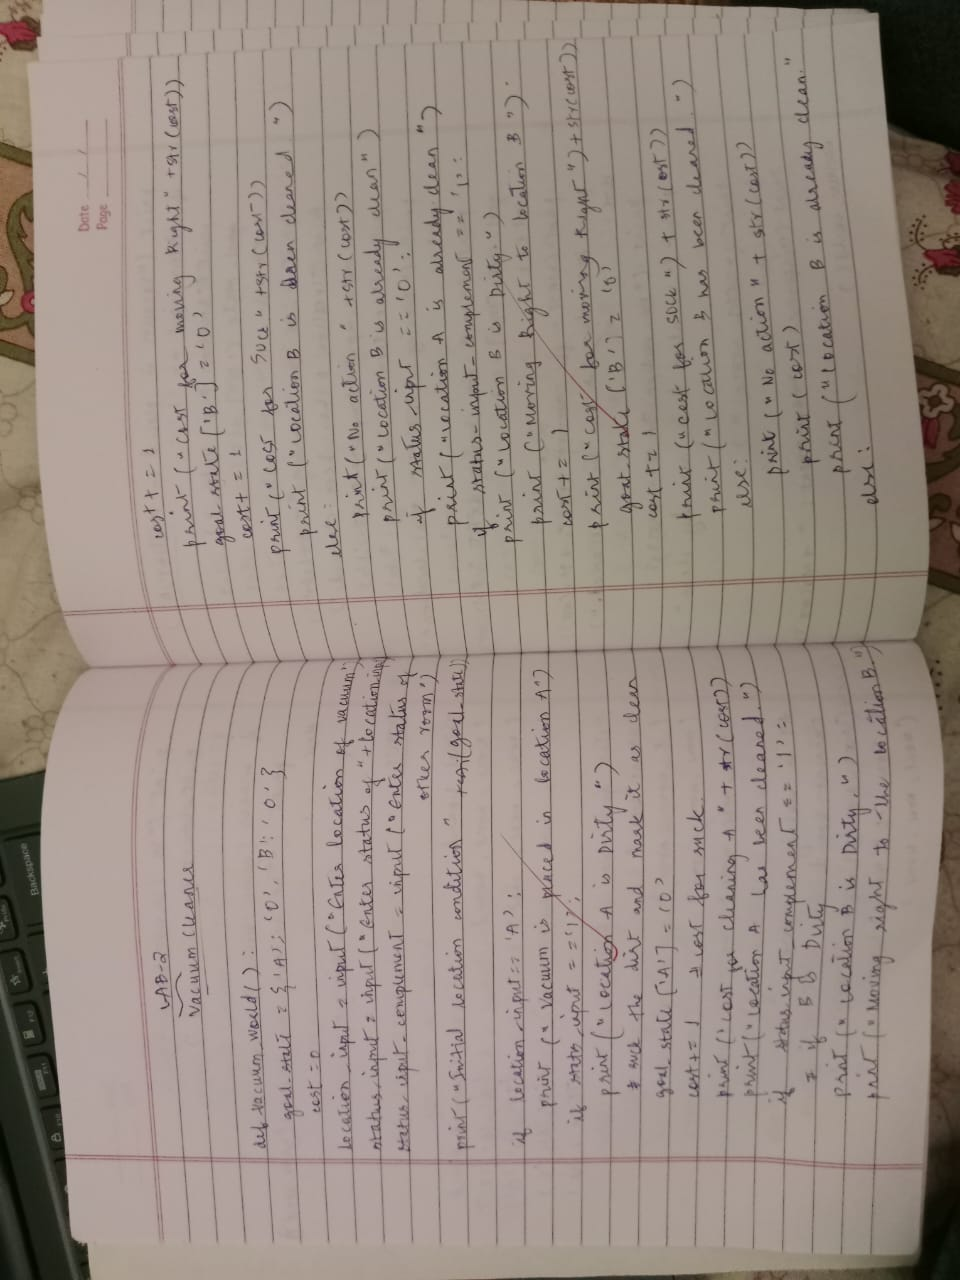 LAB-2
Vacuum Cleaner
def vacuum_world():
goal_state = {'A': '0', 'B': '0'}
cost = 0
location_input = input("Enter location of vacuum")
status_input = input("Enter status of" + location_input)
status_input_complement = input("Enter status of
other room")
print("Initial location condition" + str(goal_state))
if location_input == 'A':
print("Vacuum is placed in location A")
if status_input == '1':
print("Location A is Dirty")
# suck the dirt and mark it as clean
goal_state['A'] = '0'
cost += 1 # cost for suck
print("cost for cleaning A" + str(cost))
print("Location A has been cleaned.")
if status_input_complement == '1':
# if B is Dirty
print("Location B is Dirty.")
print("Moving right to the location B.")
Date / /
Page
cost += 1
print("cost for moving Right" + str(cost))
goal_state['B'] = '0'
cost += 1
print("cost for suck" + str(cost))
print("Location B is been cleaned")
else:
print("No action" + str(cost))
print("Location B is already clean")
if status_input == '0':
print("Location A is already clean")
if status_input_complement == '1':
print("Location B is Dirty.")
print("Moving Right to location B").
cost += 1
print("cost for moving Right") + str(cost))
goal_state['B'] = '0'
cost += 1
print("cost for suck") + str(cost))
print("Location B has been cleaned.")
else:
print("No action" + str(cost))
print(cost)
print("Location B is already clean."
else:
Backspace